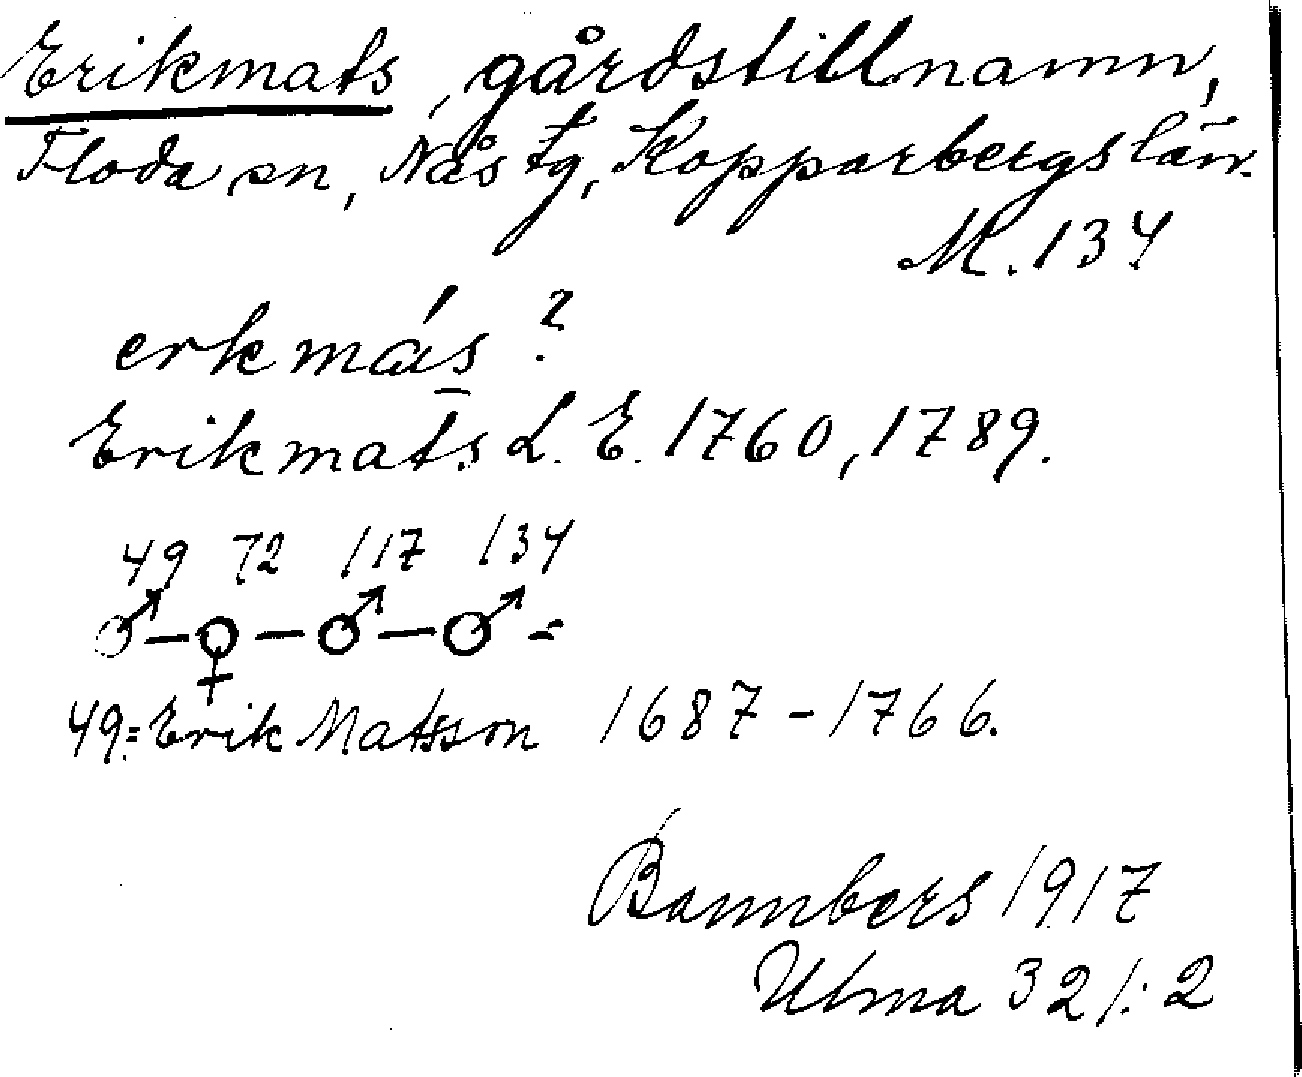 Erikmats, gårdstillnamn,
Floda sn, Nås tg, Kopparbergs län.
M. 134
erkmás?
Erikmats L. E. 1760, 1789.
49 72 117 134
♂ – ♀ – ♂ – ♂ =
49 = Erik Matsson 1687 – 1766.
Bannbers 1917
Ulma 321:2